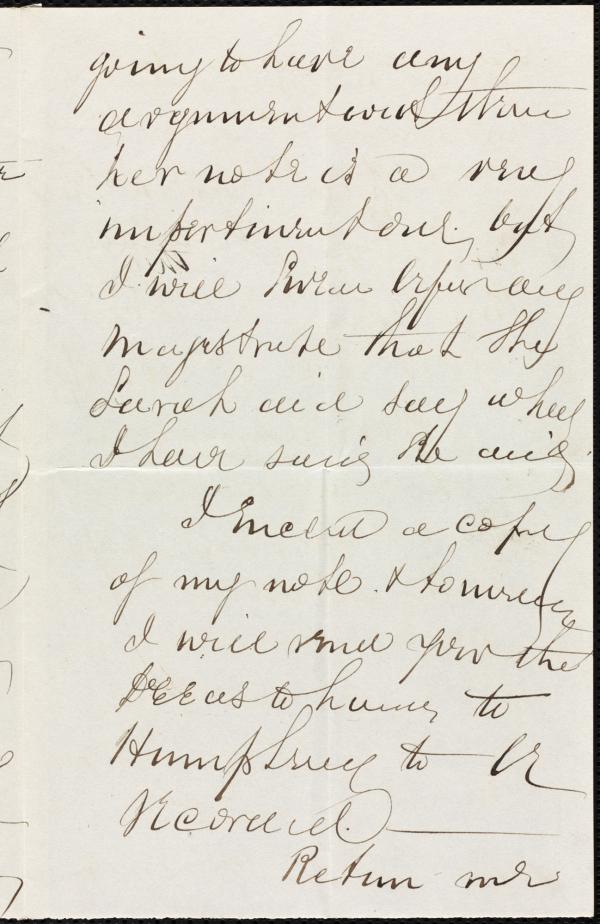 going to have any
argument with them
her note is a very
impertinent one, but
I will swear before any
Magestrate that the
Sarah did say what
I have said she did
I enclose a copy
of my note. & tomorrow
I will send you the
Deeds to hand to
Humphrey to be
recorded.
Return me